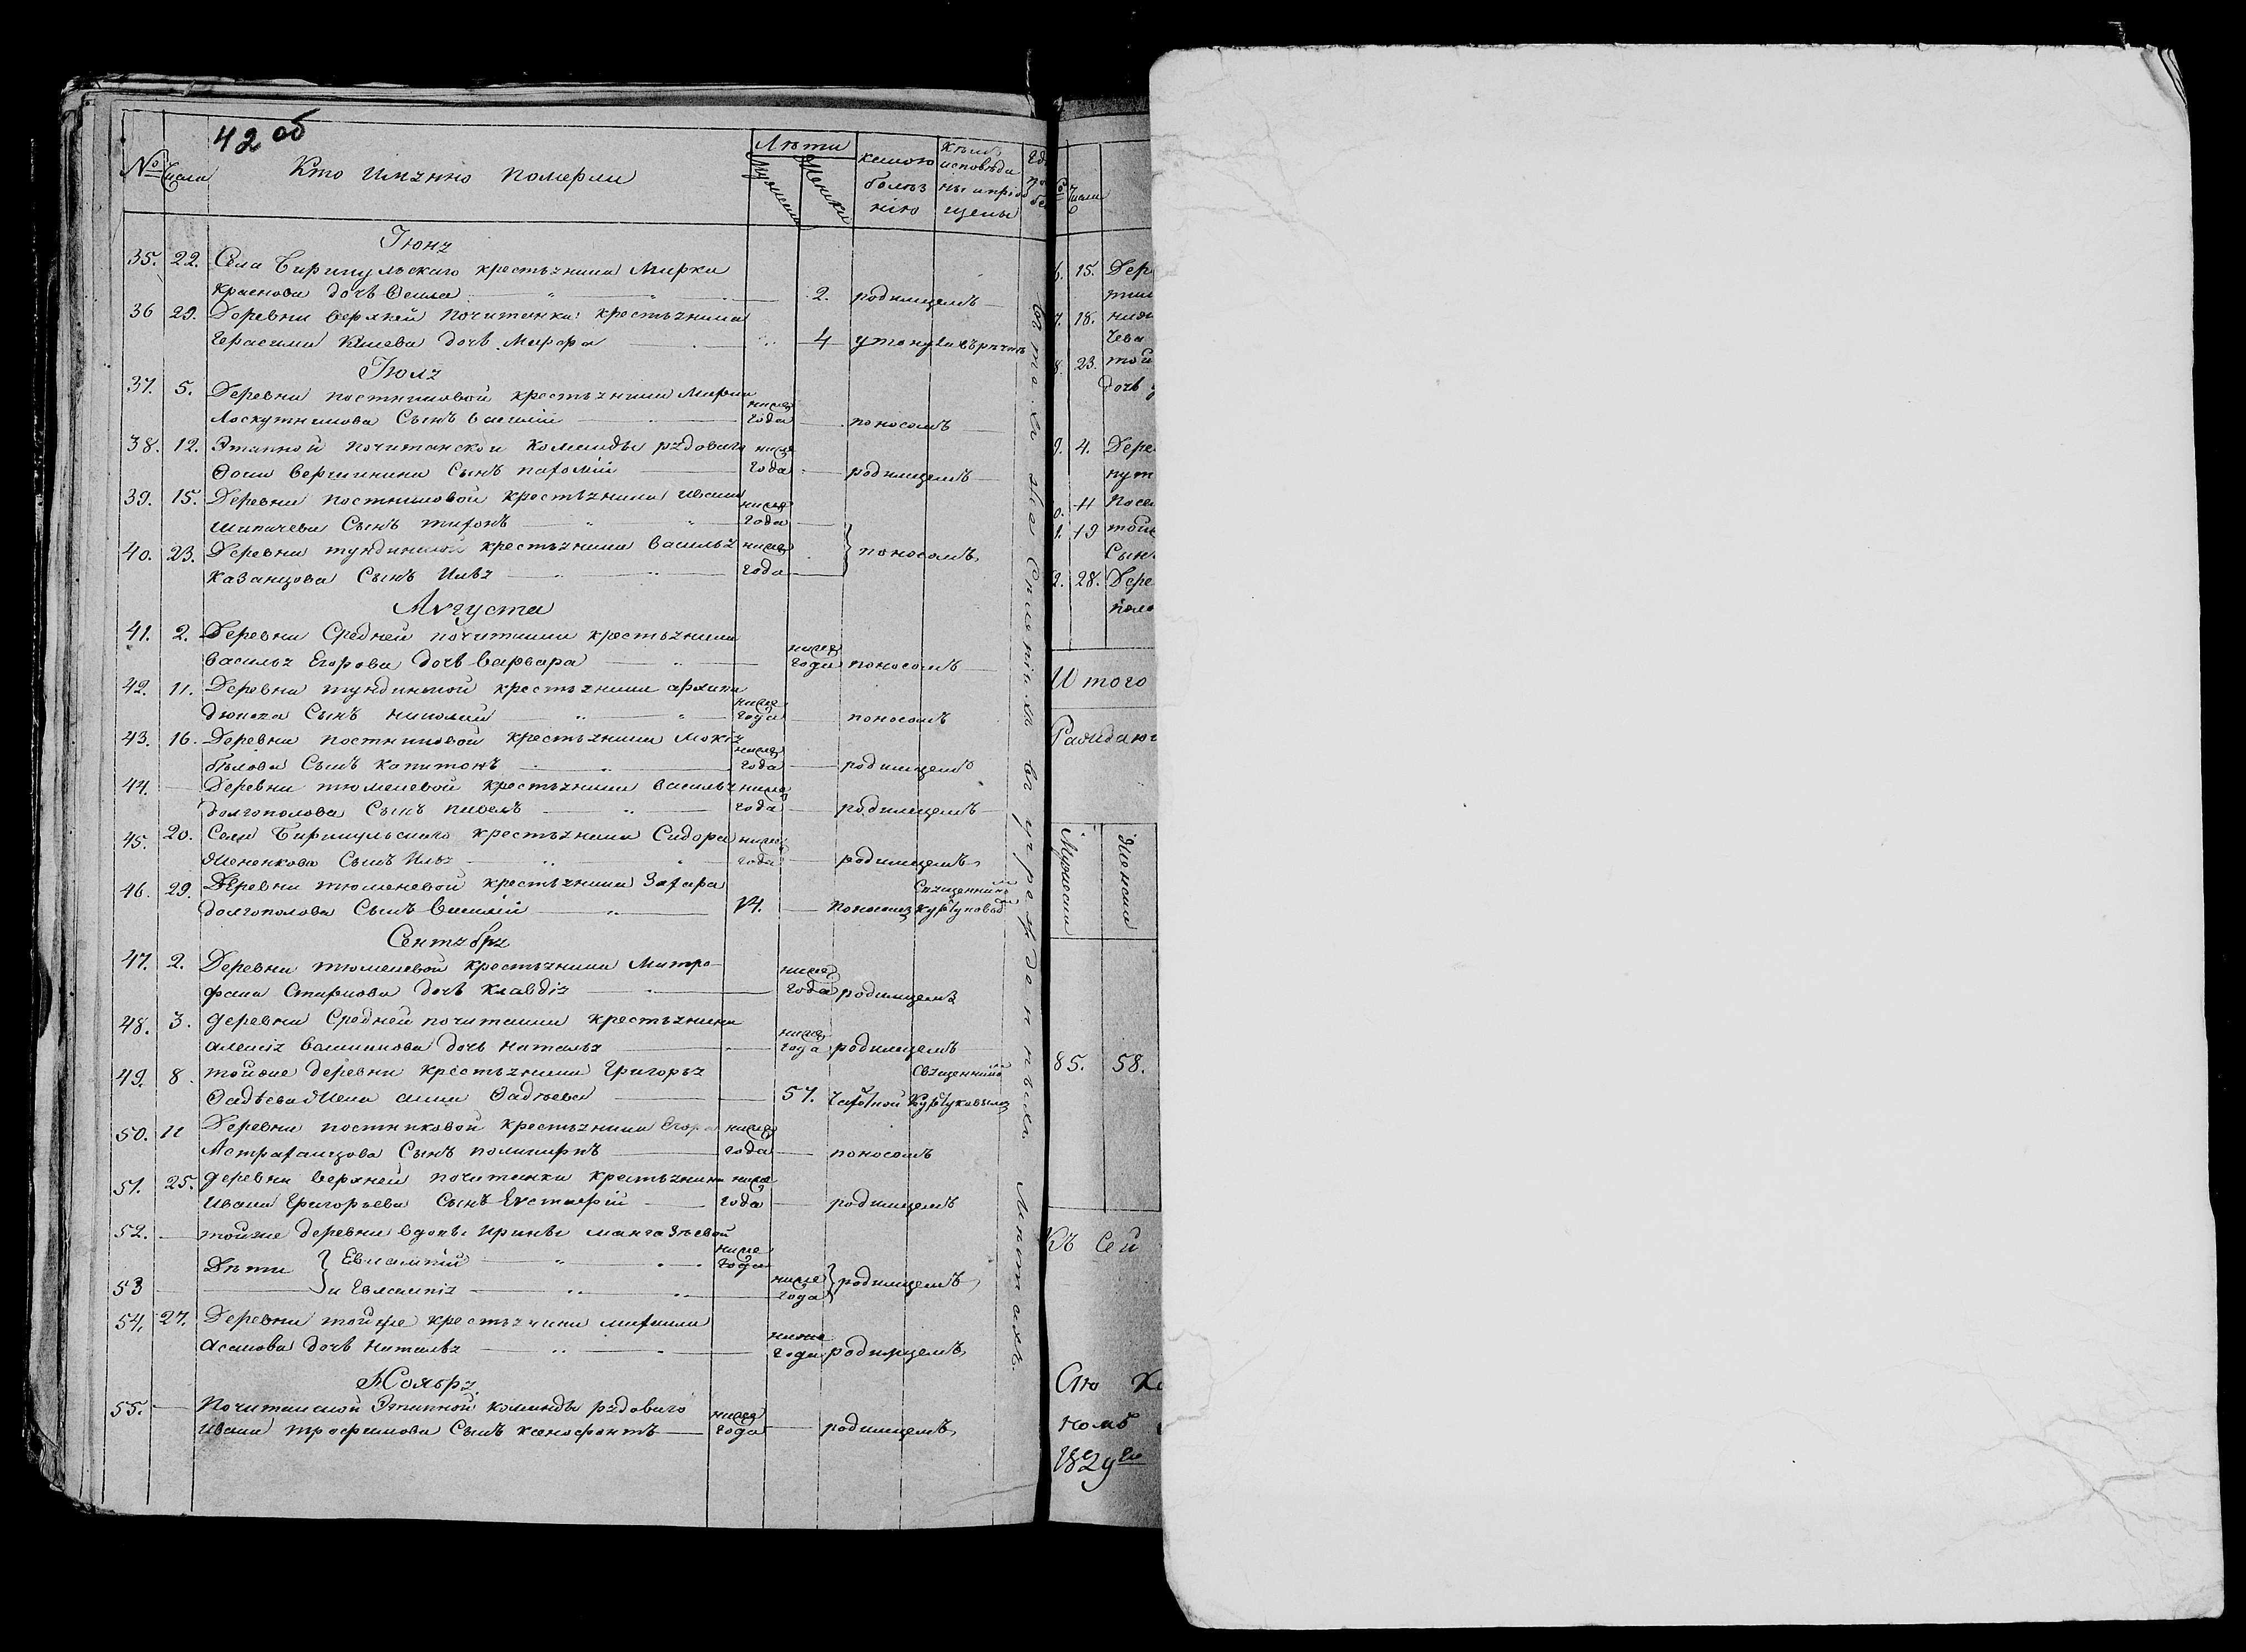 42 об
№ Числа Кто имянно померли Лѣта мужеска женска какою болѣзнію Кѣмъ исповѣданы и пріобщены
Іюня
35. 22. Села Бирикульскаго крестьянина Марка
Краснова дочь 2. родимцемъ
36 29. Деревни верхней Почитанки крестьянина
Герасима дочь Марфа 4 утонула въ рѣчкѣ
Іюля
37. 5. Деревни постниковой крестьянина Марка
Лоскутникова Сынъ василій ниже года поносомъ
38. 12. Этапной почитанской команды рядоваго
вершинина Сынъ пахомій ниже года родимцемъ
39. 15. Деревни постниковой крестьянина ивана
шипачева Сынъ тихонъ ниже года
40. 23. Деревни тундинской крестьянина василья
Казанцова Сынъ Илья ниже года поносомъ
Августа
41. 2. Деревни Средней почитанки крестьянина
василья Егорова дочь варвара ниже года поносомъ
42. 11. Деревни тундинской крестьянина архипа
Сынъ николай ниже года поносомъ
43. 16. Деревни постниковой крестьянина Мокія
бѣлова Сынъ капитонъ ниже года родимцемъ
44. Деревни тюменевой крестьянина василья
долгополова Сынъ павелъ ниже года родимцемъ
45. 20. Села Бирикульскаго крестьянина Сидора
Жененкова Сынъ Илья ниже года родимцемъ
46. 29. Деревни тюменевой крестьянина Захара
долгополова Сынъ василій 14. поносомъ Священникомъ
Сентября
47. 2. Деревни тюменевой крестьянина Митро-
фана Старкова дочь Клавдія ниже года родимцемъ
48. 3. деревни Средней почитанки крестьянина
алексія дочь наталья ниже года родимцемъ
49. 8. тойже деревни крестьянина Григорья
Фадѣева Жена анна Фадѣева 57. чахоткой Священникомъ
50. 11 Деревни постниковой крестьянина Егора
Астраханцова Сынъ поликарпъ ниже года поносомъ
51. 25. деревни верхней почитанки крестьянина
ивана Григорьева Сынъ Евстафій ниже года родимцемъ
52. тойже деревни вдовы ирины мангазѣевой
Дѣти Евлампій ниже года
53 и Евлампія ниже года родимцемъ
54. 27. Деревни тойже крестьянина михаила
асанова дочь наталья ниже года родимцемъ
Ноября
55. Почитанской Этапной команды рядоваго
ивана трофимова Сынъ ксенофонтъ ниже года родимцемъ
числа
15. Дер
18.
23. той
дочь
4. Дере
11 Посел
19 тойже
Сынъ
28. Дере
Итого
Мужеска Женска
85. 58.
Къ сей
Сію
1829го